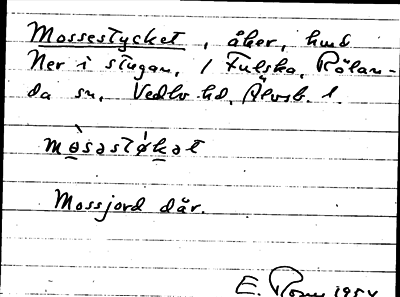 Mossestycket, åker, hmd
Ner i stugan, / Fulska, Rölan-
da sn, Vedbo hd, Älvsb. l.
mòsastýkat
Mossjord där.
E.